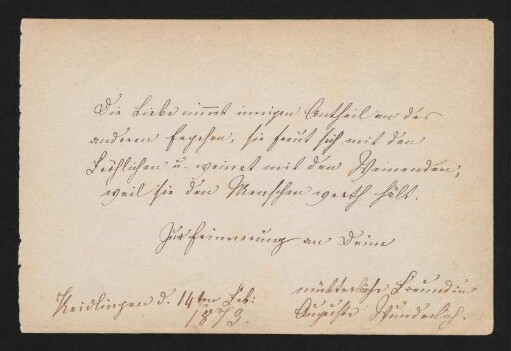 Die Liebe nimmt innigen Antheil an des
anderen Ergehen, sie freut sich mit den
Fröhlichen u. weinet mit den Weinenden;
weil sie den Menschen werth hält.
Zur Erinnerung an Deine
mütterliche Freundin
Auguste Wunderlich.
Neidlingen d. 14ten Feb:
1873.